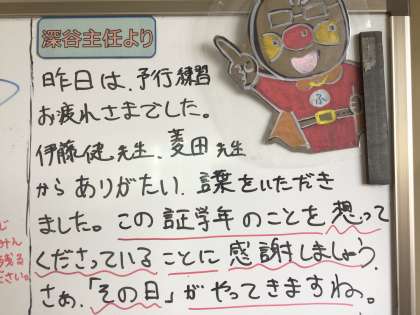 深谷主任より
昨日は、予行練習
お疲れさまでした。
伊藤健先生、菱田先生
からありがたい、言葉をいただき
ました。この証学年のことを想って
くださっていることに感謝しましょう。
さあ、「その日」がやってきますねっ。
ふ